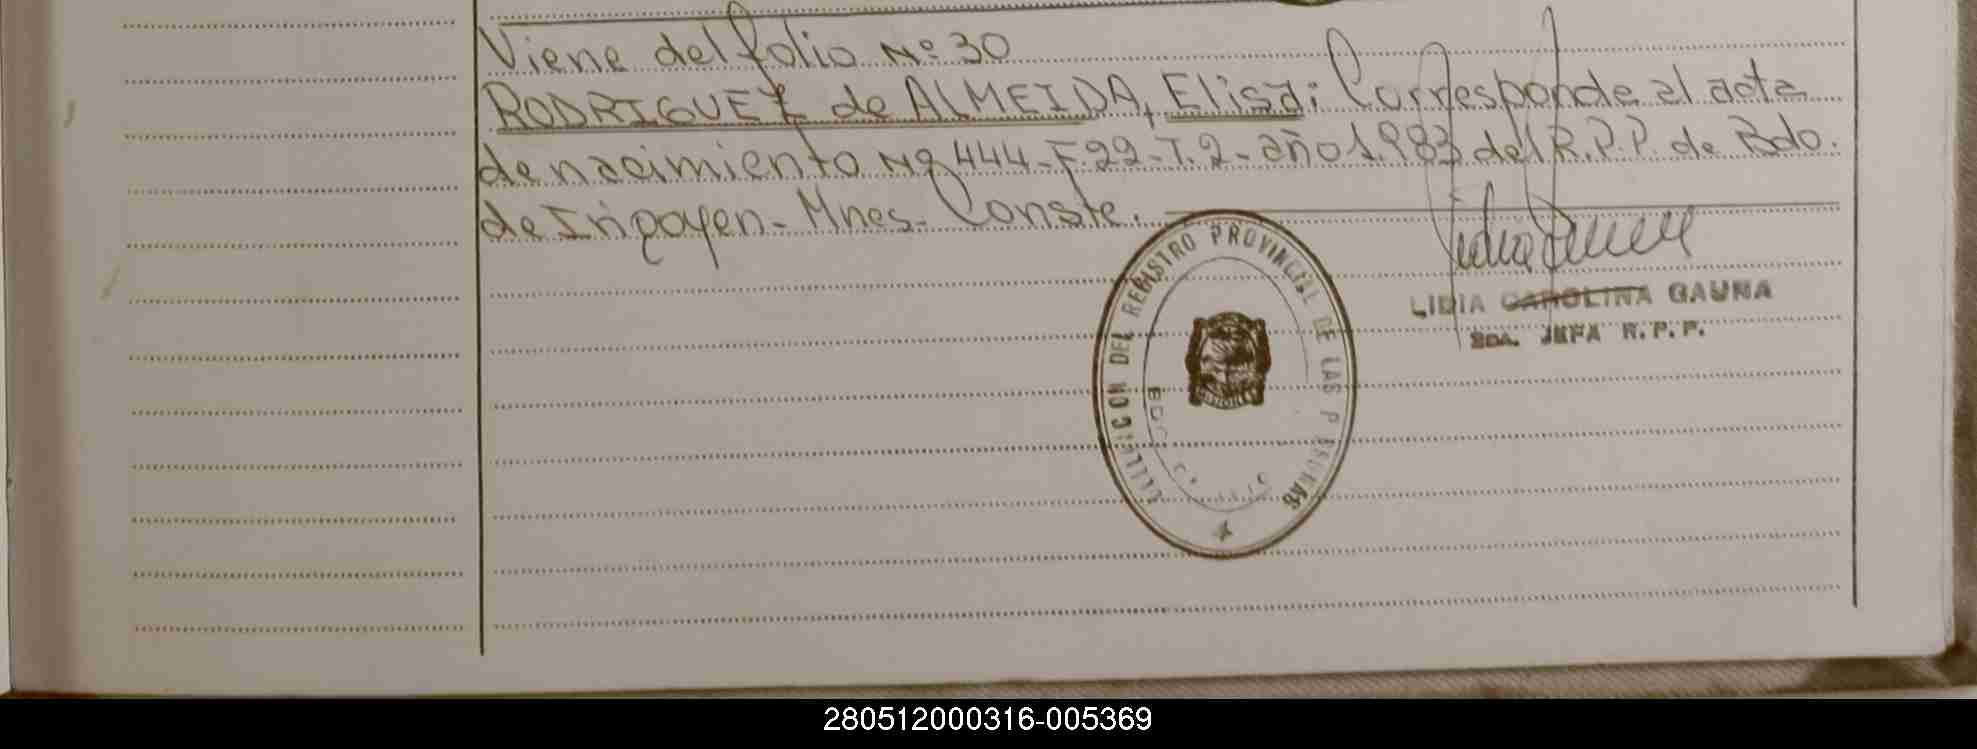 Viene del folio Nº 30
RODRIGUEZ de ALMEIDA, Elisa: Corresponde al acta
de nacimiento Nº 444-F.22-T.2-año 1.983 del R.P.P. de Bdo.
de Irigoyen-Mnes-Conste.
DEL REGISTRO PROVINCIAL DE LAS PERSONAS
LIDIA CAROLINA GAUNA
JEFA R.P.P.
280512000316-005369